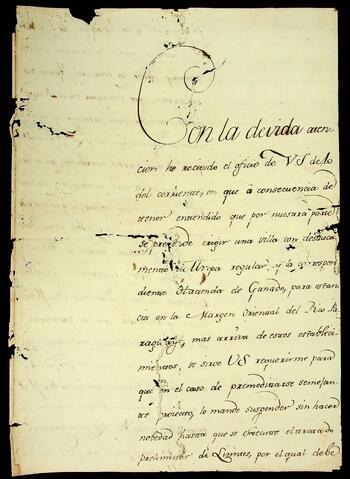 Con la devida aten-
cion he recivido el oficio de VS de 10
del corriente, en que à consecuencia de
tener entendido que por nuestra parte
se pretende erigir una villa con destaca
mento de tropa regular y la correspon
diente Hacienda de Ganado, para estan
cia en la Margen Oriental del Rio Pa
raguay, mas arriva de estos estableci
mientos, se sirve VS requerirme para
que en el caso de premeditarse semejan
te proiecto, lo mande suspender sin hacer
nobedad hasta que se execute el tratado
preliminar de Limites, por el qual debe